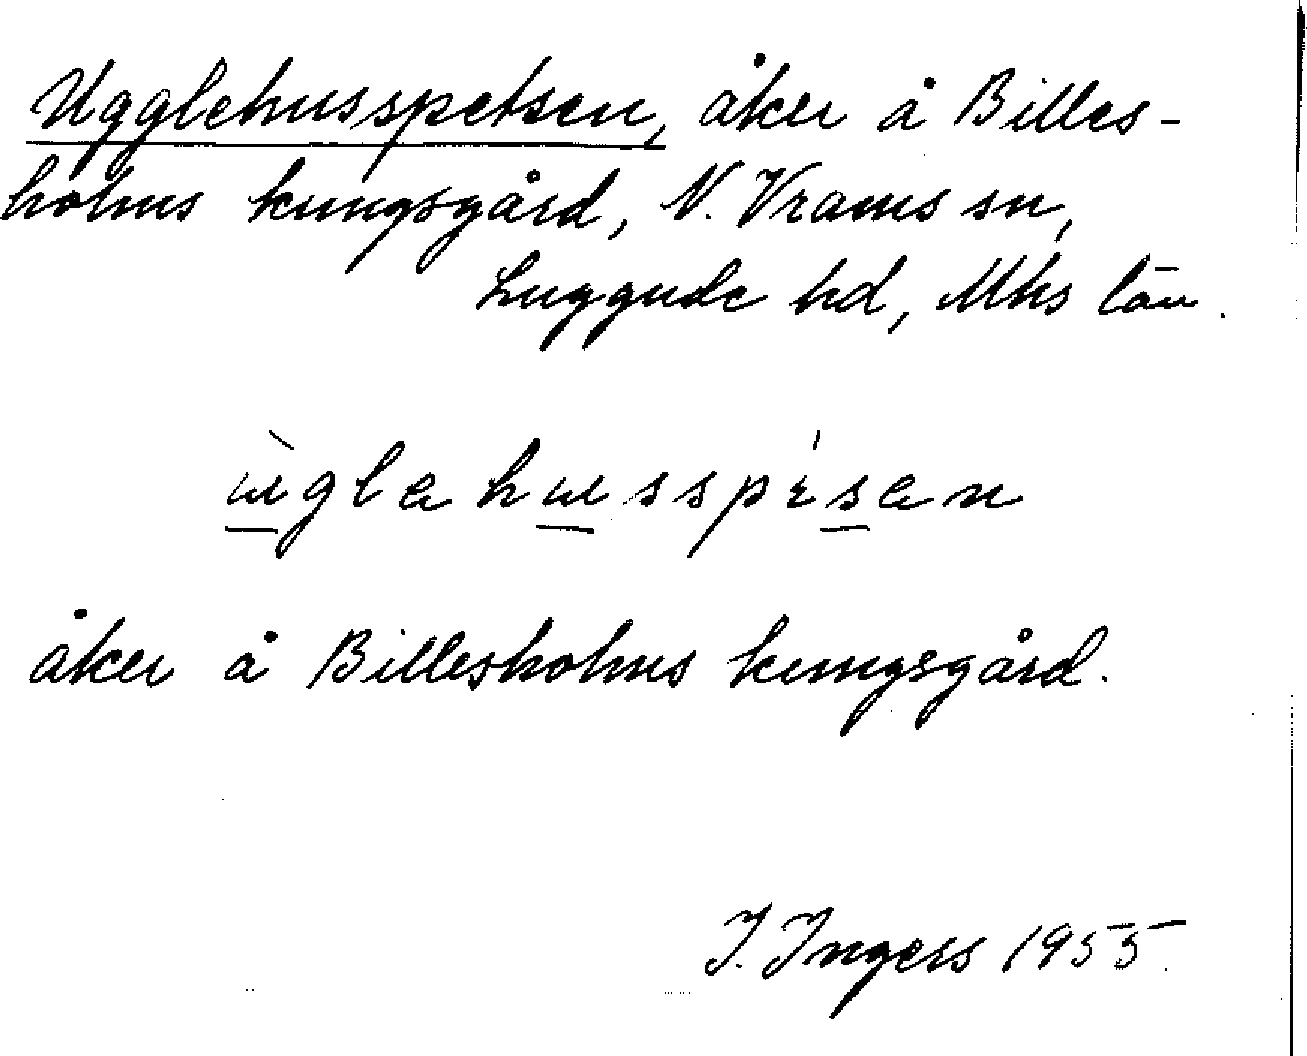 Ugglehusspetsen, åker å Billes-
holms kungsgård, N. Vrams sn,
Luggude hd, Mhs län.
åker å Billesholms kungsgård.
I. Ingers 1955.